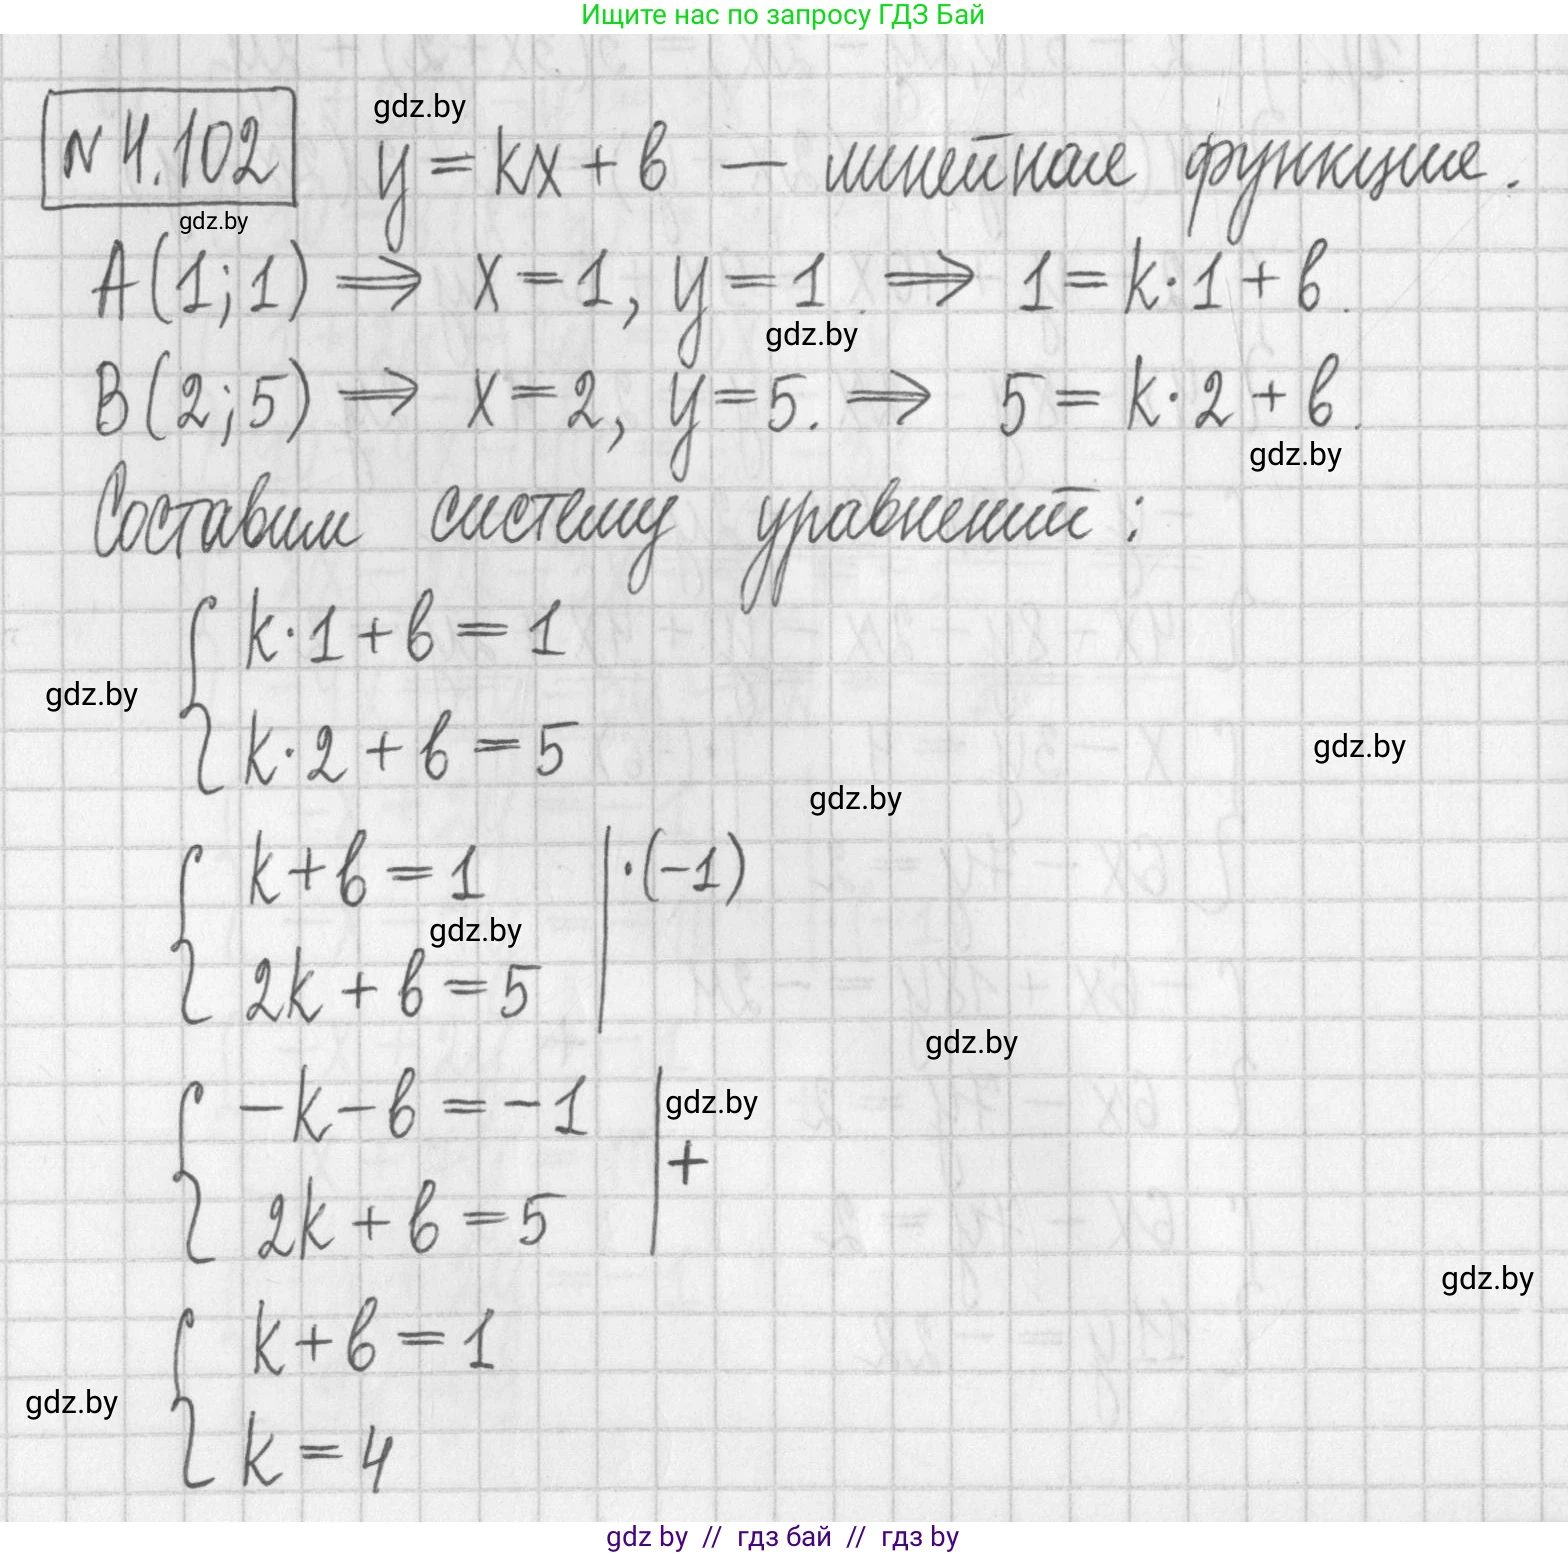 Ищите нас по запросу ГДЗ Бай
gdz.by
N 4.102 y = kx + b — линейная функция.
gdz.by
A(1;1) ⟹ x = 1, y = 1. ⟹ 1 = k·1 + b.
gdz.by
B(2;5) ⟹ x = 2, y = 5. ⟹ 5 = k·2 + b.
gdz.by
Составим систему уравнений:
{ k·1 + b = 1
gdz.by
k·2 + b = 5
gdz.by
gdz.by
{ k + b = 1 | ·(-1)
gdz.by
2k + b = 5
gdz.by
{ -k - b = -1 | +
gdz.by
2k + b = 5
gdz.by
{ k + b = 1
gdz.by
k = 4
gdz by // гдз бай // гдз by